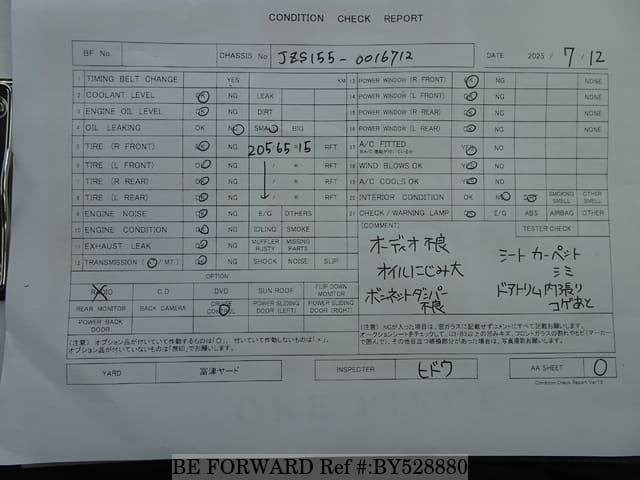 CONDITION CHECK REPORT
BF No. CHASSIS No JZS155-0016712 DATE 2025 / 7 / 12
1 TIMING BELT CHANGE YES KM 13 POWER WINDOW (R FRONT) OK NG NONE
2 COOLANT LEVEL OK NG LEAK 14 POWER WINDOW (L FRONT) OK NG NONE
3 ENGINE OIL LEVEL OK NG DIRT 15 POWER WINDOW (R REAR) OK NG NONE
4 OIL LEAKING OK NG SMALL BIG 16 POWER WINDOW (L REAR) OK NG NONE
5 TIRE (R FRONT) OK NG 205/65R15 RFT 17 A/C FITTED YES NG
6 TIRE (L FRONT) OK NG / R RFT 18 WIND BLOWS OK YES NG
7 TIRE (R REAR) OK NG / R RFT 19 A/C COOLS OK YES NG
8 TIRE (L REAR) OK NG / R RFT 20 INTERIOR CONDITION OK NG SMOKING SMELL OTHER SMELL
9 ENGINE NOISE OK NG E/G OTHERS 21 CHECK / WARNING LAMP OK E/G ABS AIRBAG OTHER
10 ENGINE CONDITION OK NG IDLING SMOKE [COMMENT] TESTER CHECK
11 EXHAUST LEAK OK NG MUFFLER RUSTY MISSING PARTS
12 TRANSMISSION ( / MT) OK NG SHOCK NOISE SLIP
オーディオ 根
オイルにじみ大
ボーンネットダンパー
根
シート カーペント
シミ
ドアトリム内張り
コゲあと
OPTION
RADIO CD DVD SUN ROOF FLIP DOWN MONITOR
REAR MONITOR BACK CAMERA CRUISE CONTROL POWER SLIDING DOOR (LEFT) POWER SLIDING DOOR (RIGHT)
POWER BACK DOOR
(注意) オプション品が付いていて作動するものは「○」, 付いていて作動しないものは「×」,
オプション品が付いていないものは「無印」でお願いします。
(注意) NGが入った項目は、窓ガラスに記載せずコメントにすべて記載お願いします。
YARD 富津ヤード INSPECTER ヒドウ AA SHEET 0
Condition Check Report Ver7.0
BE FORWARD Ref #:BY528880